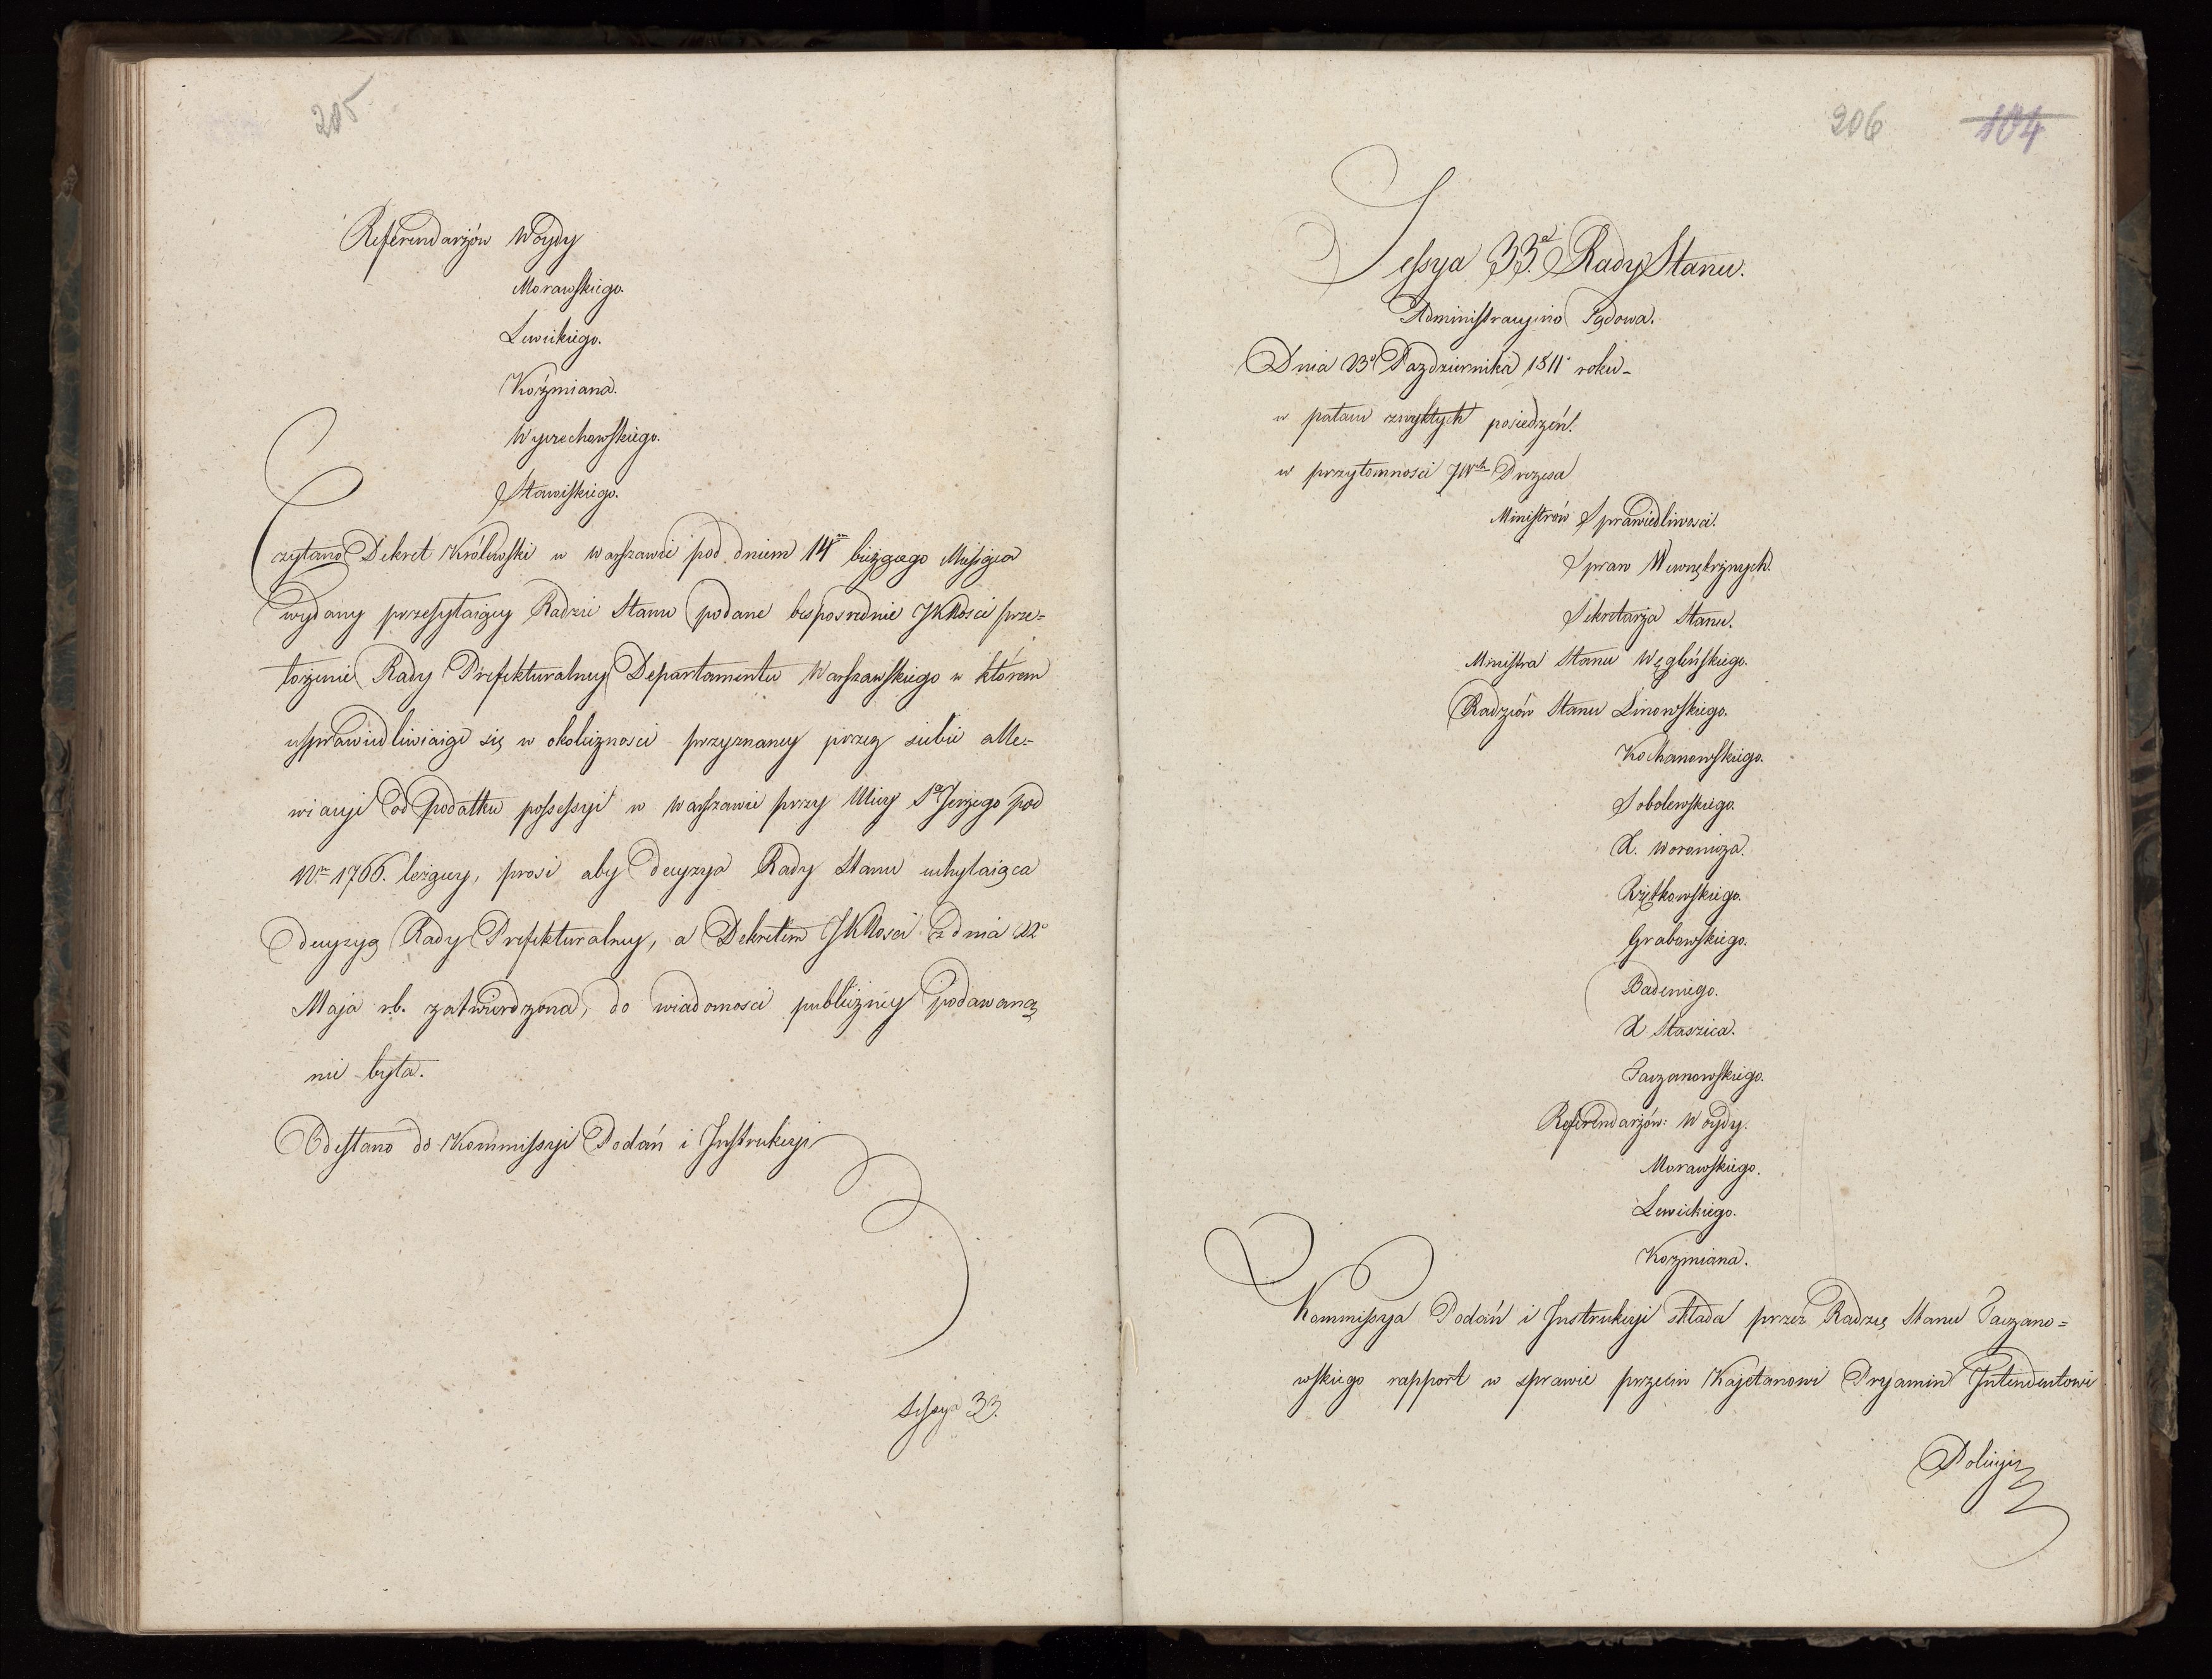 205
Referendarzów Woydy
Morawskiego.
Lewickiego.
Koźmiana.
Wyczechowskiego.
Stawiskiego.
Czytano Dekret Królewski w Warszawie pod dniem 14m bieżącego Miesiąca
wydany przesyłaiący Radzie Stanu podane bespośrednie JKMości prze=
łożenie Rady Prefekturalney Departamentu Warszawskiego w którem
usprawiedliwiaiąc się w okoliczności przyznaney przez siebie alle=
wiacyi od podatku possessyi w Warszawie przy Ulicy So Jerzego pod
Nrm 1766. leżącey, prosi aby decyzya Rady Stanu uchylaiąca
decyzyą Rady Prefekturalney, a Dekretem JKMości z dnia 22o
Maja r.b. zatwierdzona, do wiadomości publiczney podawaną
nie była.
Odesłano do Kommissyi Podań i Instrukcyi
Sessya 33.
206 104
Sessya 33.a Rady Stanu.
Administracyino Sądowa.
Dnia 23o Pazdziernika 1811o roku
w pałacu zwykłych posiedzeń.
w przytomności JWch Prezesa
Ministrów Sprawiedliwości.
Spraw Wewnętrznych.
Sekretarza Stanu.
Ministra Stanu Węgleńskiego.
Radzców Stanu Linowskiego.
Kochanowskiego.
Sobolewskiego.
X. Woronicza.
Rzętkowskiego.
Grabowskiego.
Badeniego.
X Staszica.
Taczanowskiego.
Referendarzów: Woydy.
Morawskiego.
Lewickiego.
Kozmiana.
Kommissya Podań i Instrukcyi składa przez Radzcę Stanu Taczano=
wskiego rapport w sprawie przeciw Kajetanowi Pryamin Intendentowi
Policyi